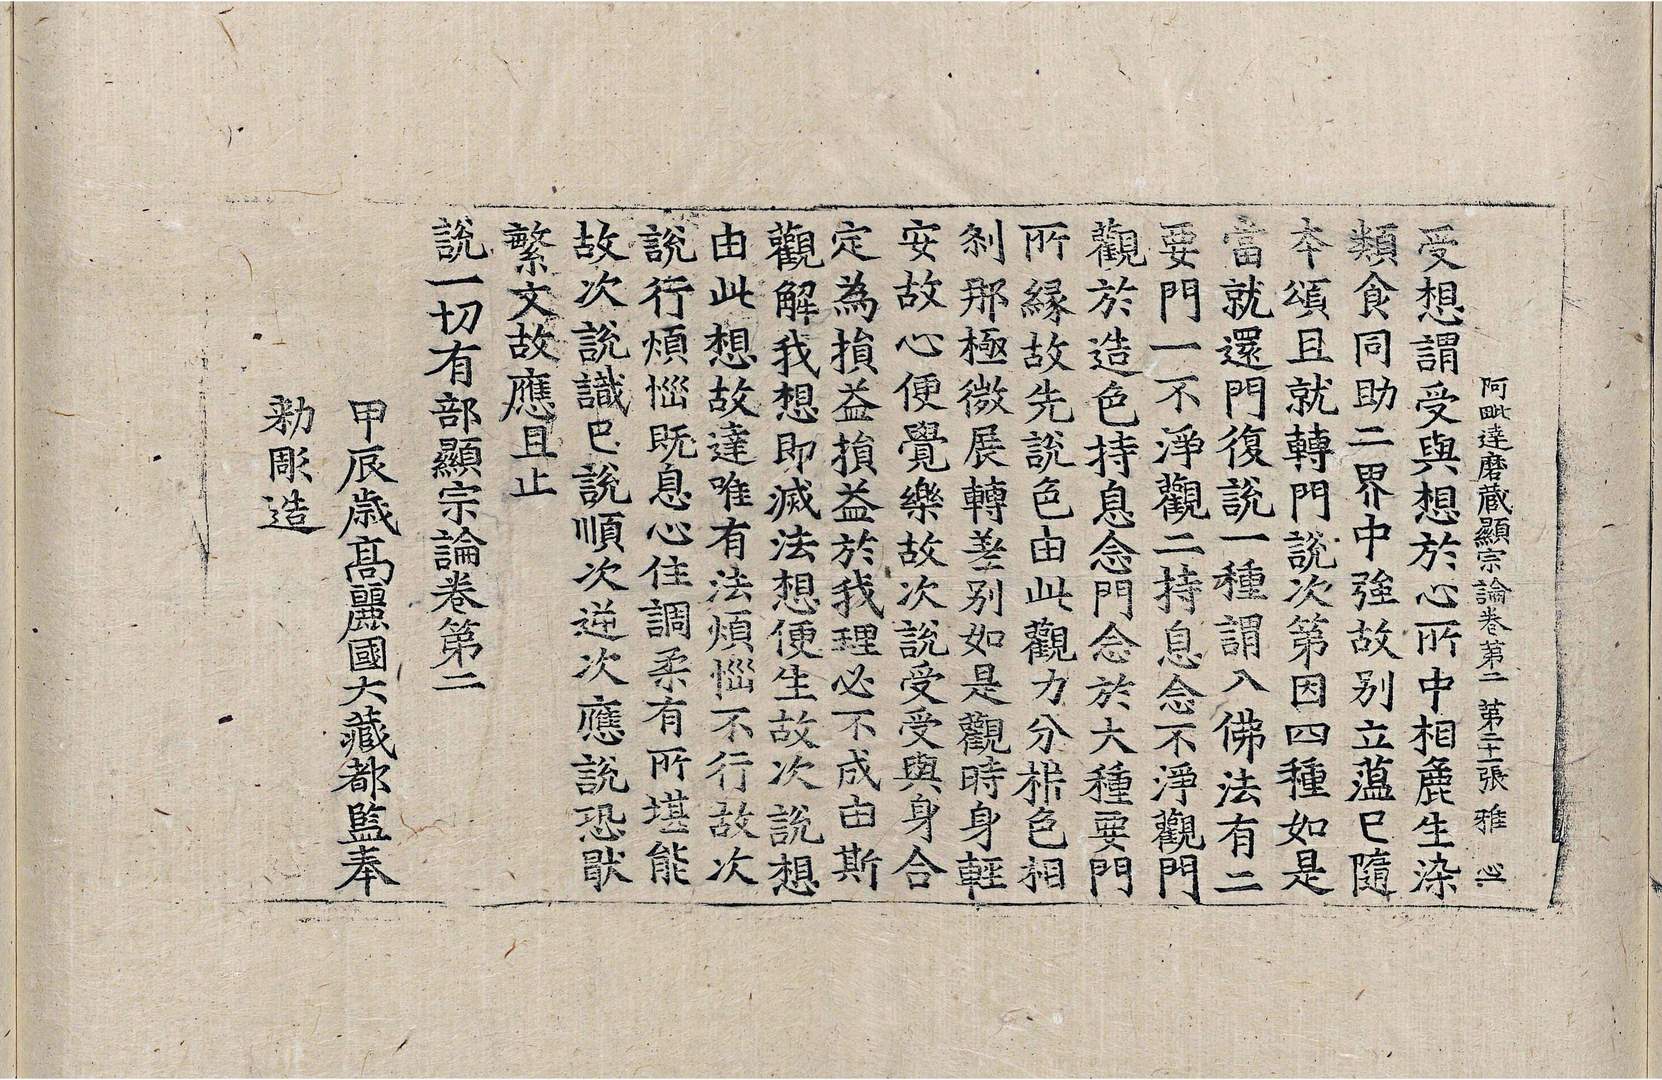 阿毗達磨藏顯宗論卷第二 第二十一張 雅 心
受想謂受與想於心所中相麁生染
類食同助二界中強故別立蘊已隨
本頌且就轉門說次第因四種如是
當就還門復說一種謂入佛法有二
要門一不淨觀二持息念不淨觀門
觀於造色持息念門念於大種要門
所緣故先說色由此觀力分析色相
刹那極微展轉差別如是觀時身輕
安故心便覺樂故次說受受與身合
定為損益損益於我理必不成由斯
觀解我想即滅法想便生故次說想
由此想故達唯有法煩惱不行故次
說行煩惱旣息心住調柔有所堪能
故次說識已說順次逆次應說恐猒
繁文故應且止
說一切有部顯宗論卷第二
甲辰歲高麗國大藏都監奉
勅彫造